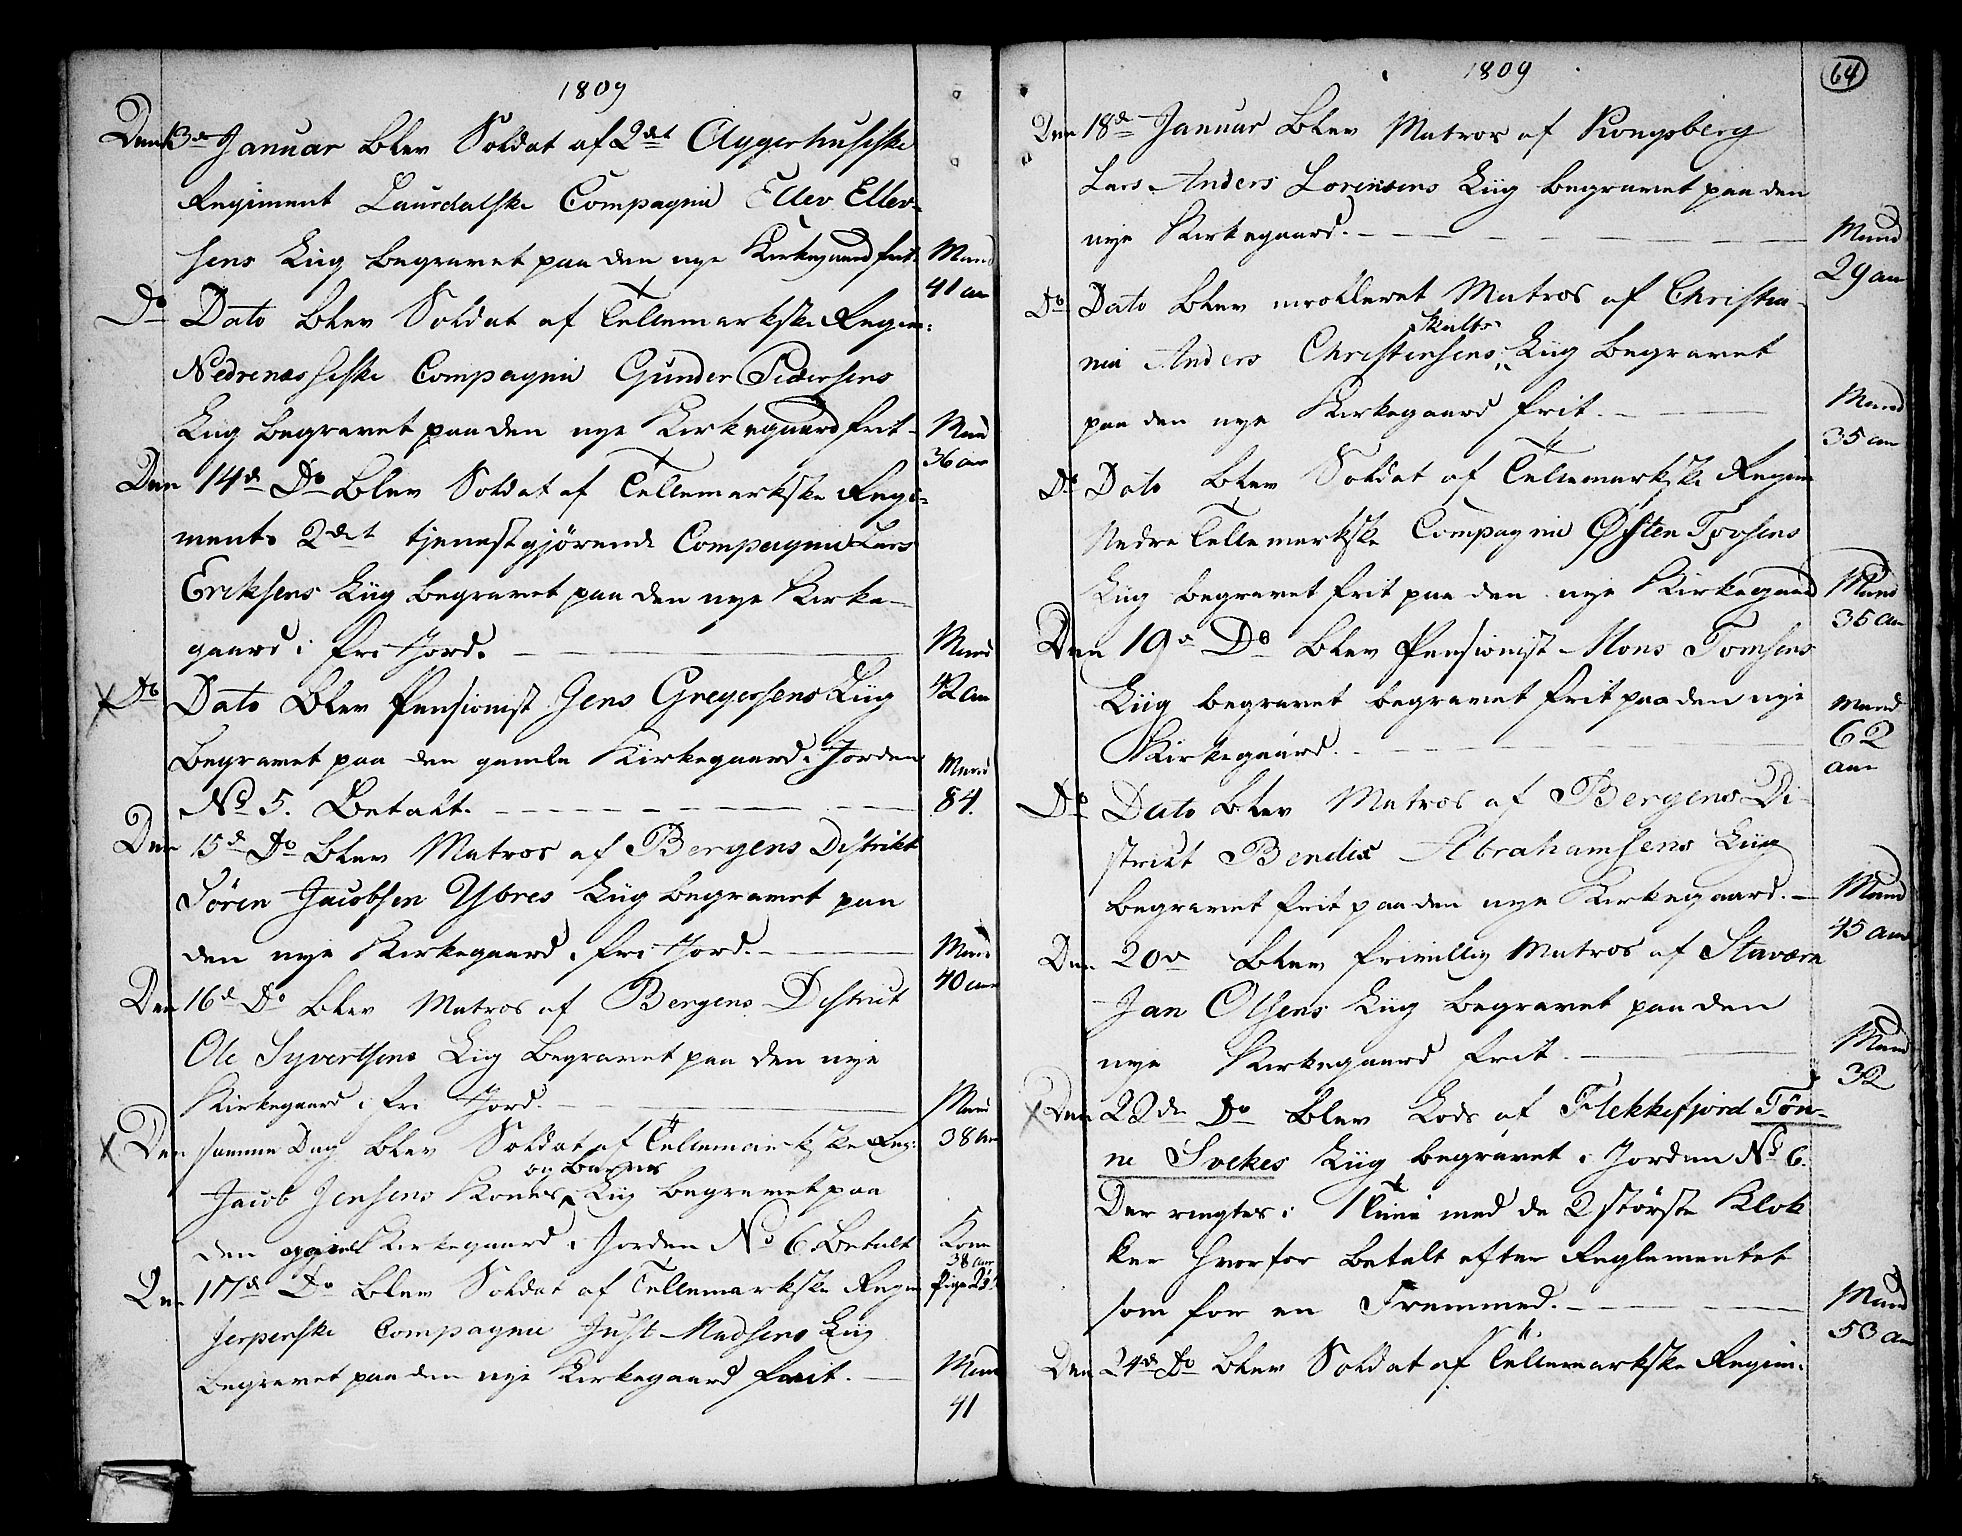 1809
Den 13de Januar blev Soldat af 2det Aggerhusiske
Regiment Laurdalske Compagnie Ellev Ellev-
sens Liig begravet paa den nye Kirkegaard frit. Mand
41 aar
Do Dato blev Soldat af Tellemarkske Regim:
Nedrenæssiske Compagnie Gunder Pedersens
Liig begravet paa den nye Kirkegaard frit - Mand
36 aar
Den 14de Do blev Soldat af Tellemarkske Regi-
ments 2det tjenestgjørende Compagnie Lars
Eriksens Liig begravet paa den nye Kirke-
gaard i fri Jord. Mand
42 aar
x Do Dato blev Pensionist Jens Gregersens Liig
begravet paa den gamle Kirkegaard i Jorden Mand
No 5. Betalt. 84.
Den 15de Do blev Matros af Bergens Distrikt
Sören Jacobsen Ybres Liig begravet paa
den nye Kirkegaard i fri Jord. Mand
40 aar
Den 16de Do blev Matros af Bergens District
Ole Syvertsens Liig begravet paa den nye
Kirkegaard i fri Jord. Mand
38 aar
x Den samme Dag blev Soldat af Tellemarkske Reg:
og Barns
Jacob Jensens Kones Liig begravet paa
den Kirkegaard i Jorden No 6 Betalt Kone
38 aar
Den 17de Do blev Soldat af Tellemarkske Regim Pige
Jerpenske Compagnie Just Madsens Liig
begravet paa den nye Kirkegaard frit. Mand
41
1809
64
Den 18de Januar blev Matros af Kongsberg
Lars Anders Lorensens Liig begravet paa den
nye Kirkegaard. Mand
29 aar
Do Dato blev enrolleret Matros af Christia-
Skults
nia Anders Christensens Liig begravet
paa den nye Kirkegaard frit. Mand
35 aar
Do Dato blev Soldat af Tellemarkske Regim
Nedre Tellemarkske Compagnie Østen Tovsens
Liig begravet frit paa den nye Kirkegaard Mand
35 aar
Den 19de Do blev Pensionist Mons Tomsens
Liig begravet begravet frit paa den nye Mand
Kirkegaard. 62
aar
Do Dato blev Matros af Bergens Di-
strikt Bendix Abrahamsens Liig
begravet frit paa den nye Kirkegaard. Mand
45 aar
Den 20de blev frivillig Matros af Staværn
Jan Olsens Liig begravet paa den
nye Kirkegaard frit. Mand
32
x Den 22de Do blev Lods af Flekkefjord Tön-
ne Svekes Liig begravet i Jorden No 6.
Der ringtes i med de 2 störste Klok
ker hvorfor betalt efter Reglementet
som for en Fremmed. Mand
53 aar
Den 24de Do blev Soldat af Tellemarkske Regim: